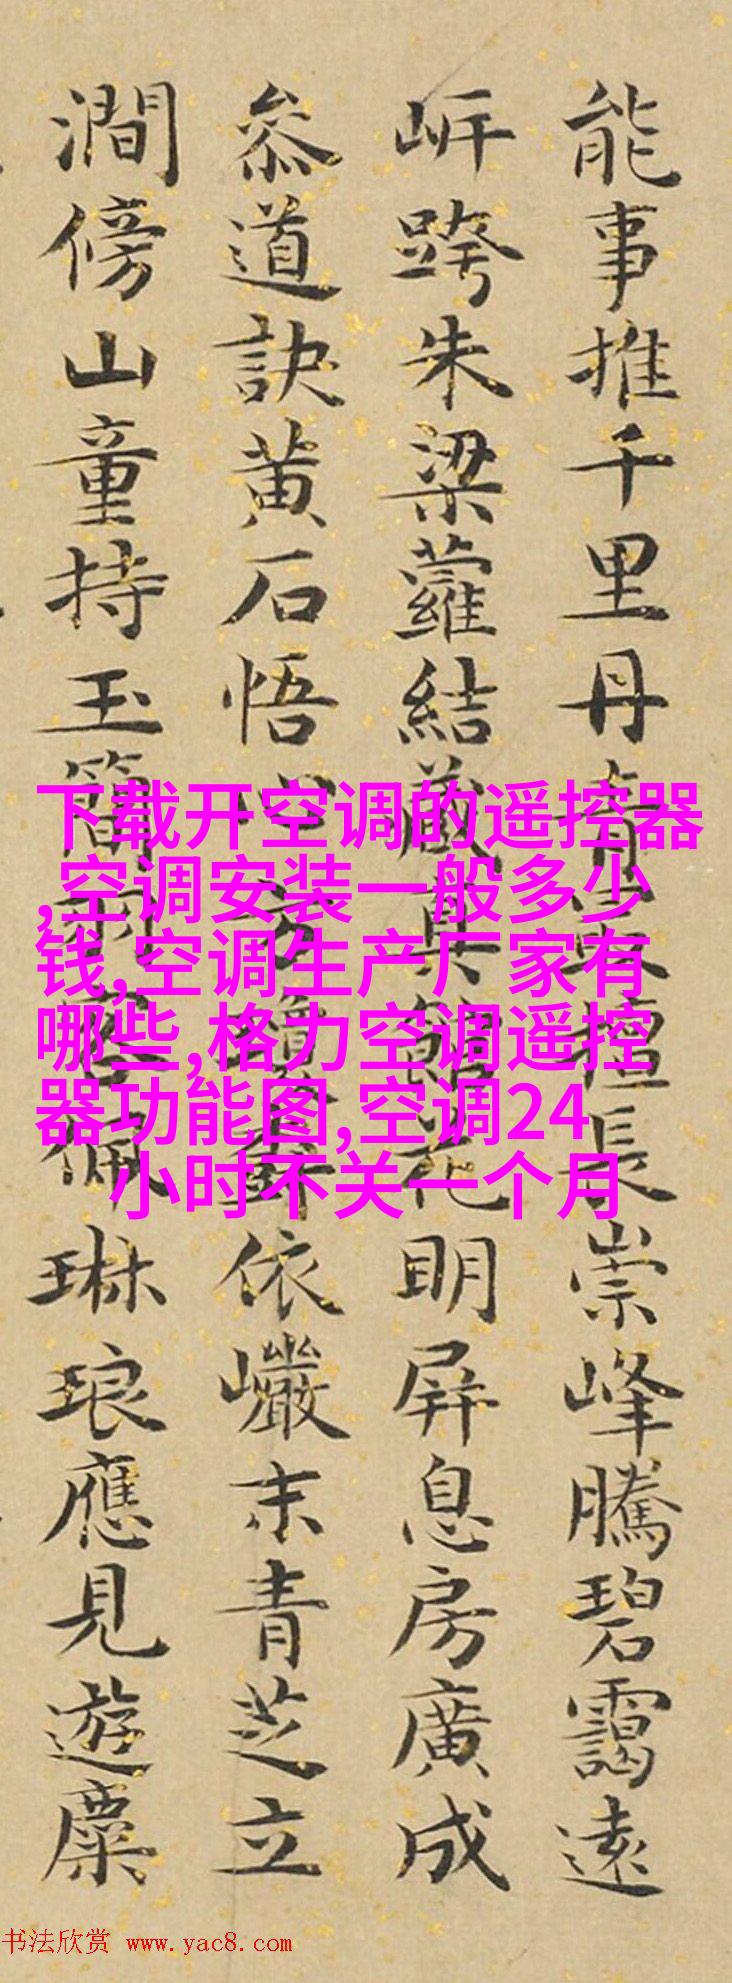 能事推千里丹青
長崇峰騰碧靄遠
岍跨朱梁蘿結藏真館花明屏息房廣成
叅道訣黄石悟
依巗末青芝立
澗傍山童持玉簡
佩琳琅應見遊麋
下载开空调的遥控器
,空调安装一般多少
钱,空调生产厂家有
哪些,格力空调遥控
器功能图,空调24
小时不关一个月
书法欣赏 www.yac8.com